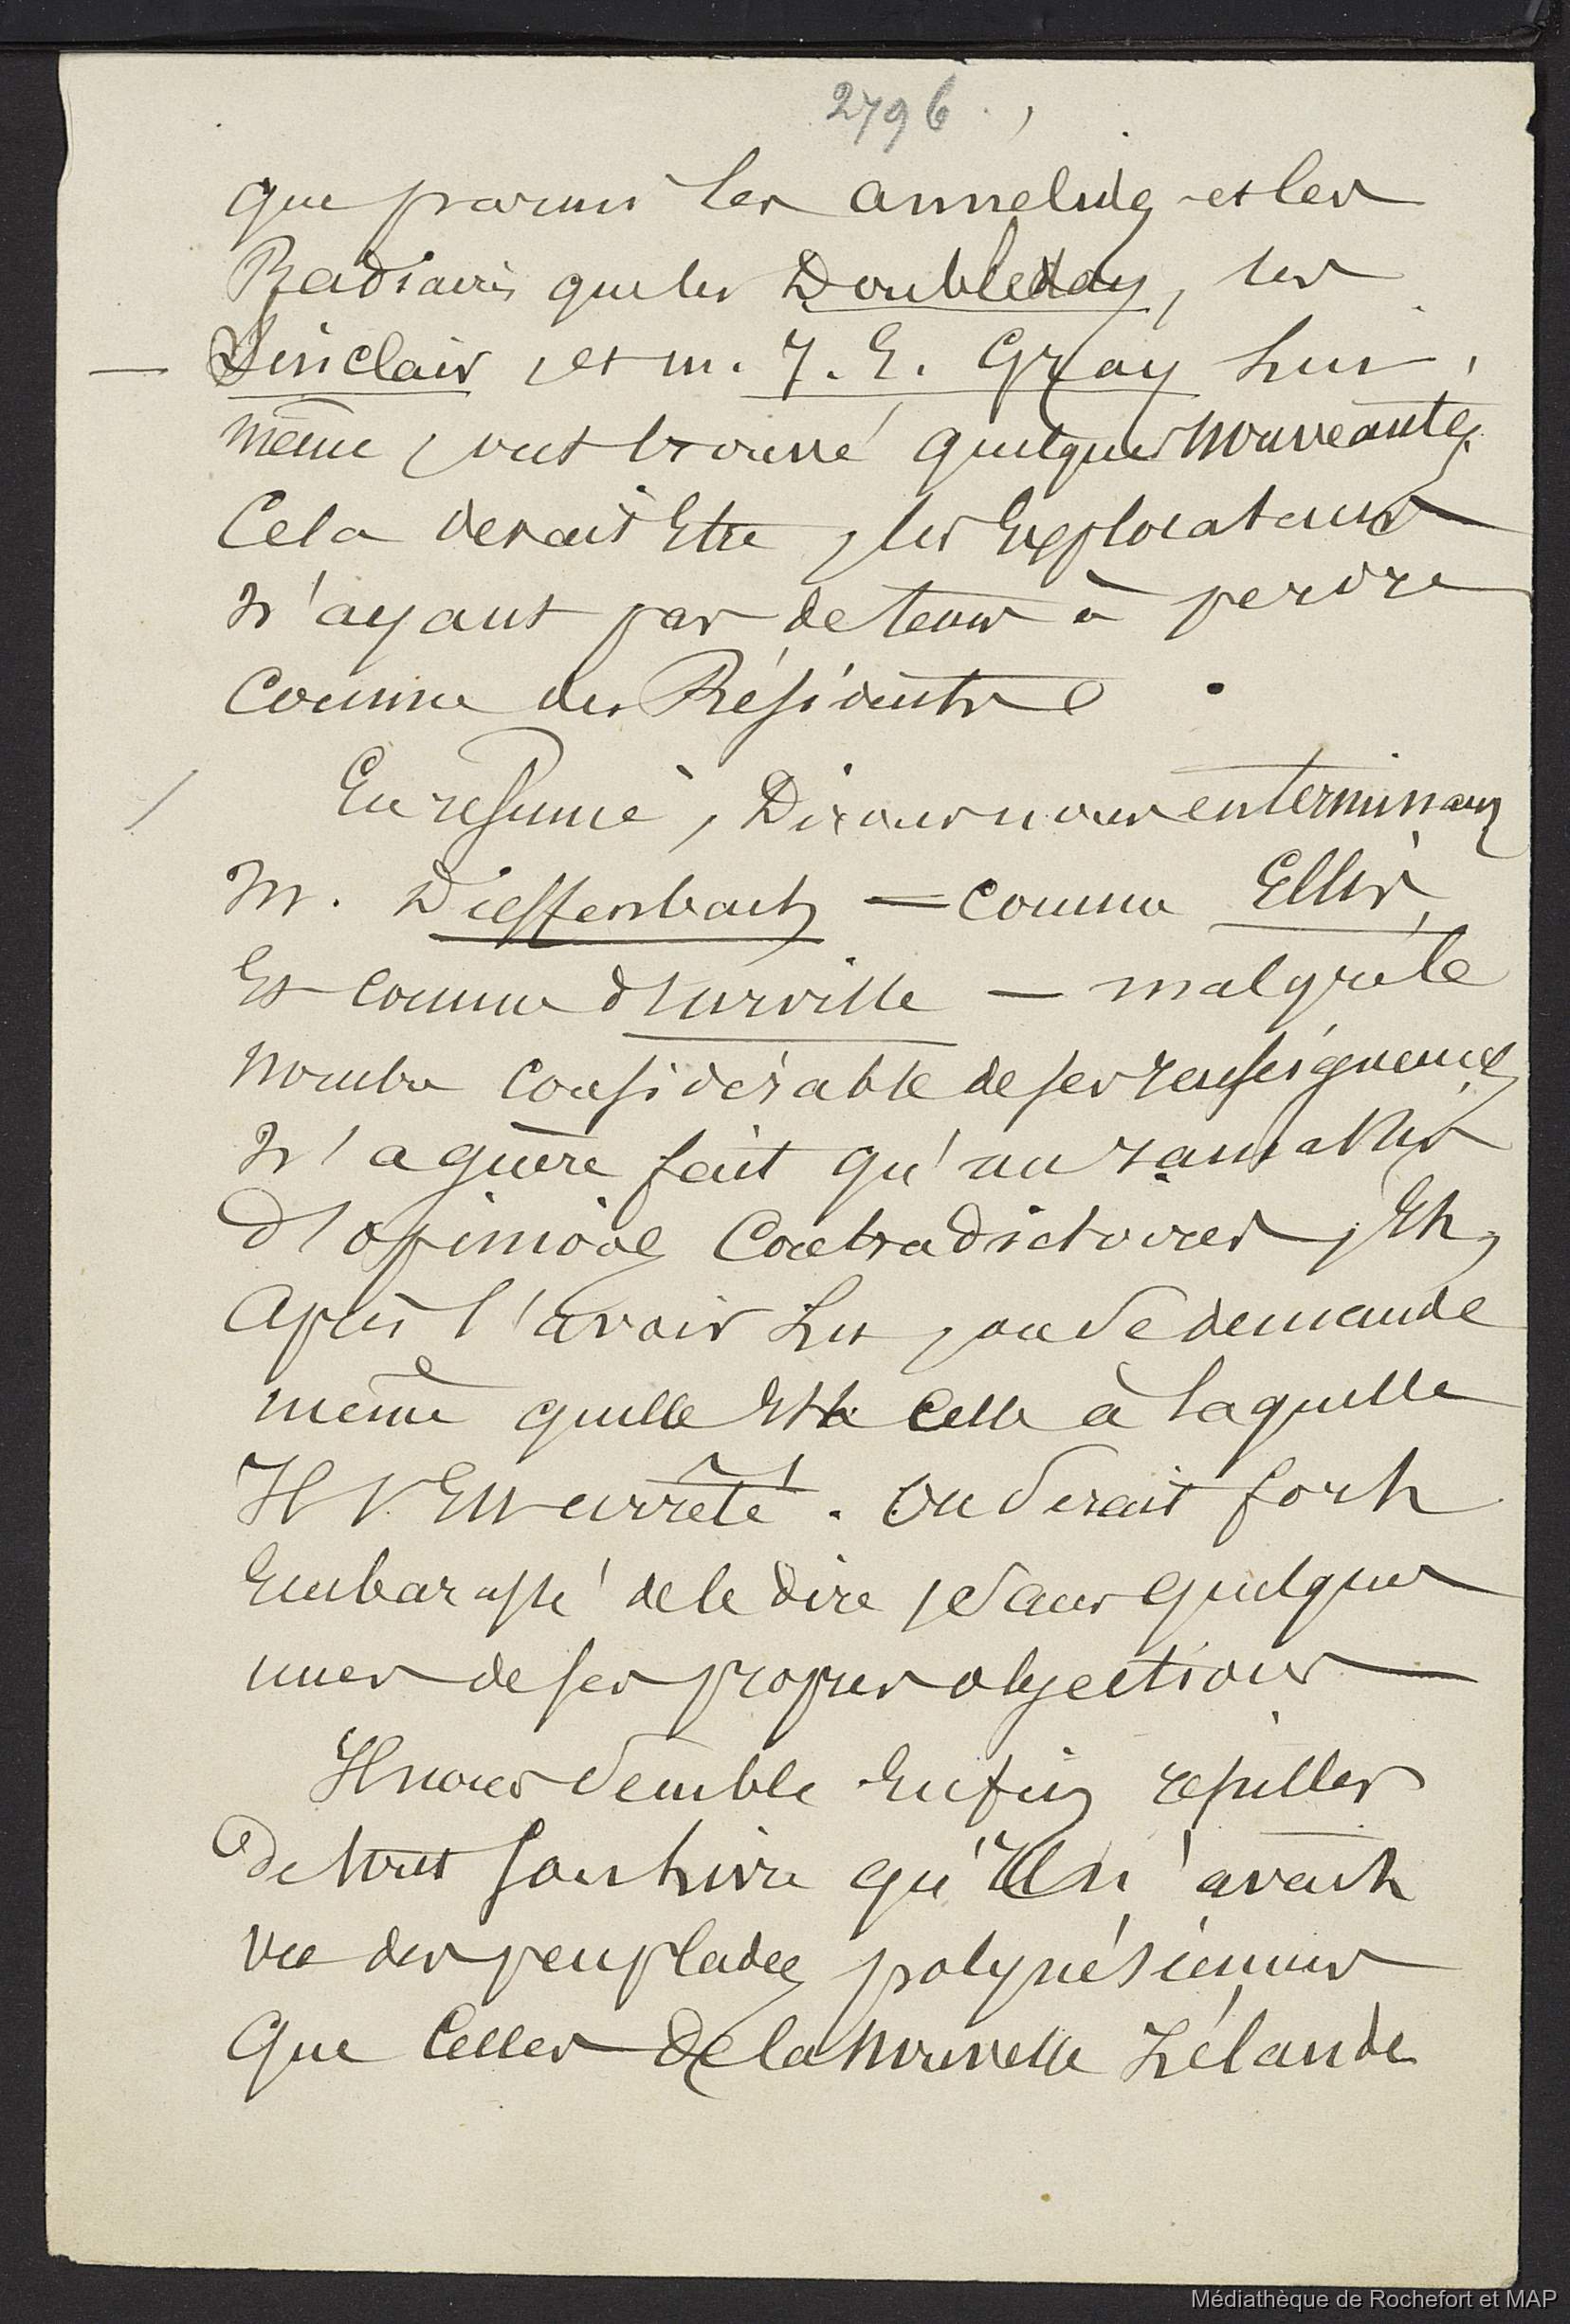 2796.
que parmi les annelides et les
Radiaires que les Doubleday, les
— Sinclair, et m. J. E. Gray lui
même, ont trouvé quelques nouveautés.
Cela devait Etre, les Explorateurs
n'ayant pas de tems à perdre
comme des Résidents.
/ En résumé, Disons nous en terminant
M. Dieffenbach — comme Ellis,
Et comme d'Urville — malgré le
nombre considérable de ses renseignements
n'a guère fait qu'un ramassis
d'opinions contradictoires, Et,
Après l'avoir Lu, on se demande
même quelle Est celle à laquelle
Il s'Est arrêté. On serait fort
Embarassé de le dire, sans quelques
unes de ses propres objections —
Il nous semble Enfin résulter
De tout son livre qu'Il n'avait
vu des peuplades polynésiennes
Que Celles De la Nouvelle Zélande
Médiathèque de Rochefort et MAP